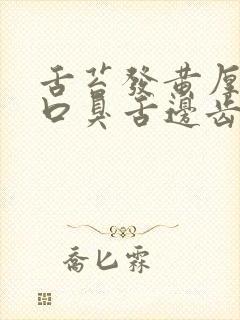 舌苔發黄厚
口臭舌邊齒
喬匕霖